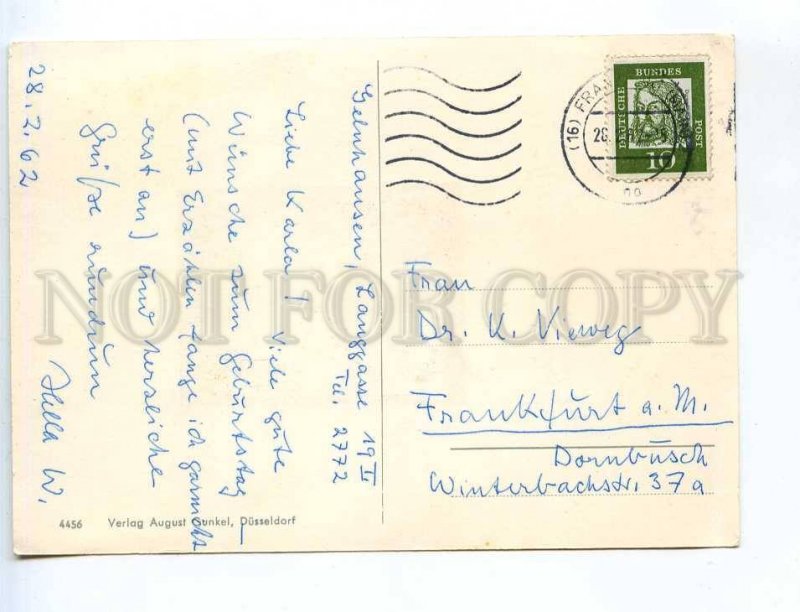 Gelnhausen, Langgasse 19 II
Tel. 2772
Liebe Karla! Viele gute
Wünsche zum Geburtstag
(mit Erzählen fange ich garnicht
erst an) und herzliche
Grüße rundum
Hella W.
28.2.62
4456 Verlag August Gunkel, Düsseldorf
DEUTSCHE
BUNDES
POST
10
(16) FRA
Frau
Dr. K. Vieweg
Frankfurt a. M.
Dornbusch
Winterbachstr. 37a
NOT FOR COPY